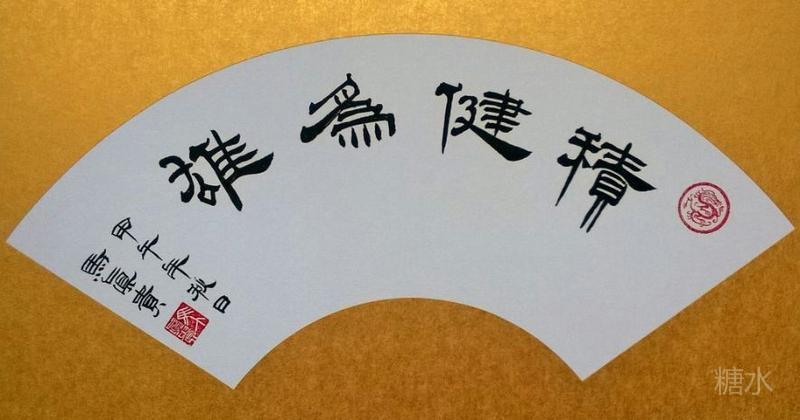 積健為雄
甲午年秋日
馬滬貴
糖水